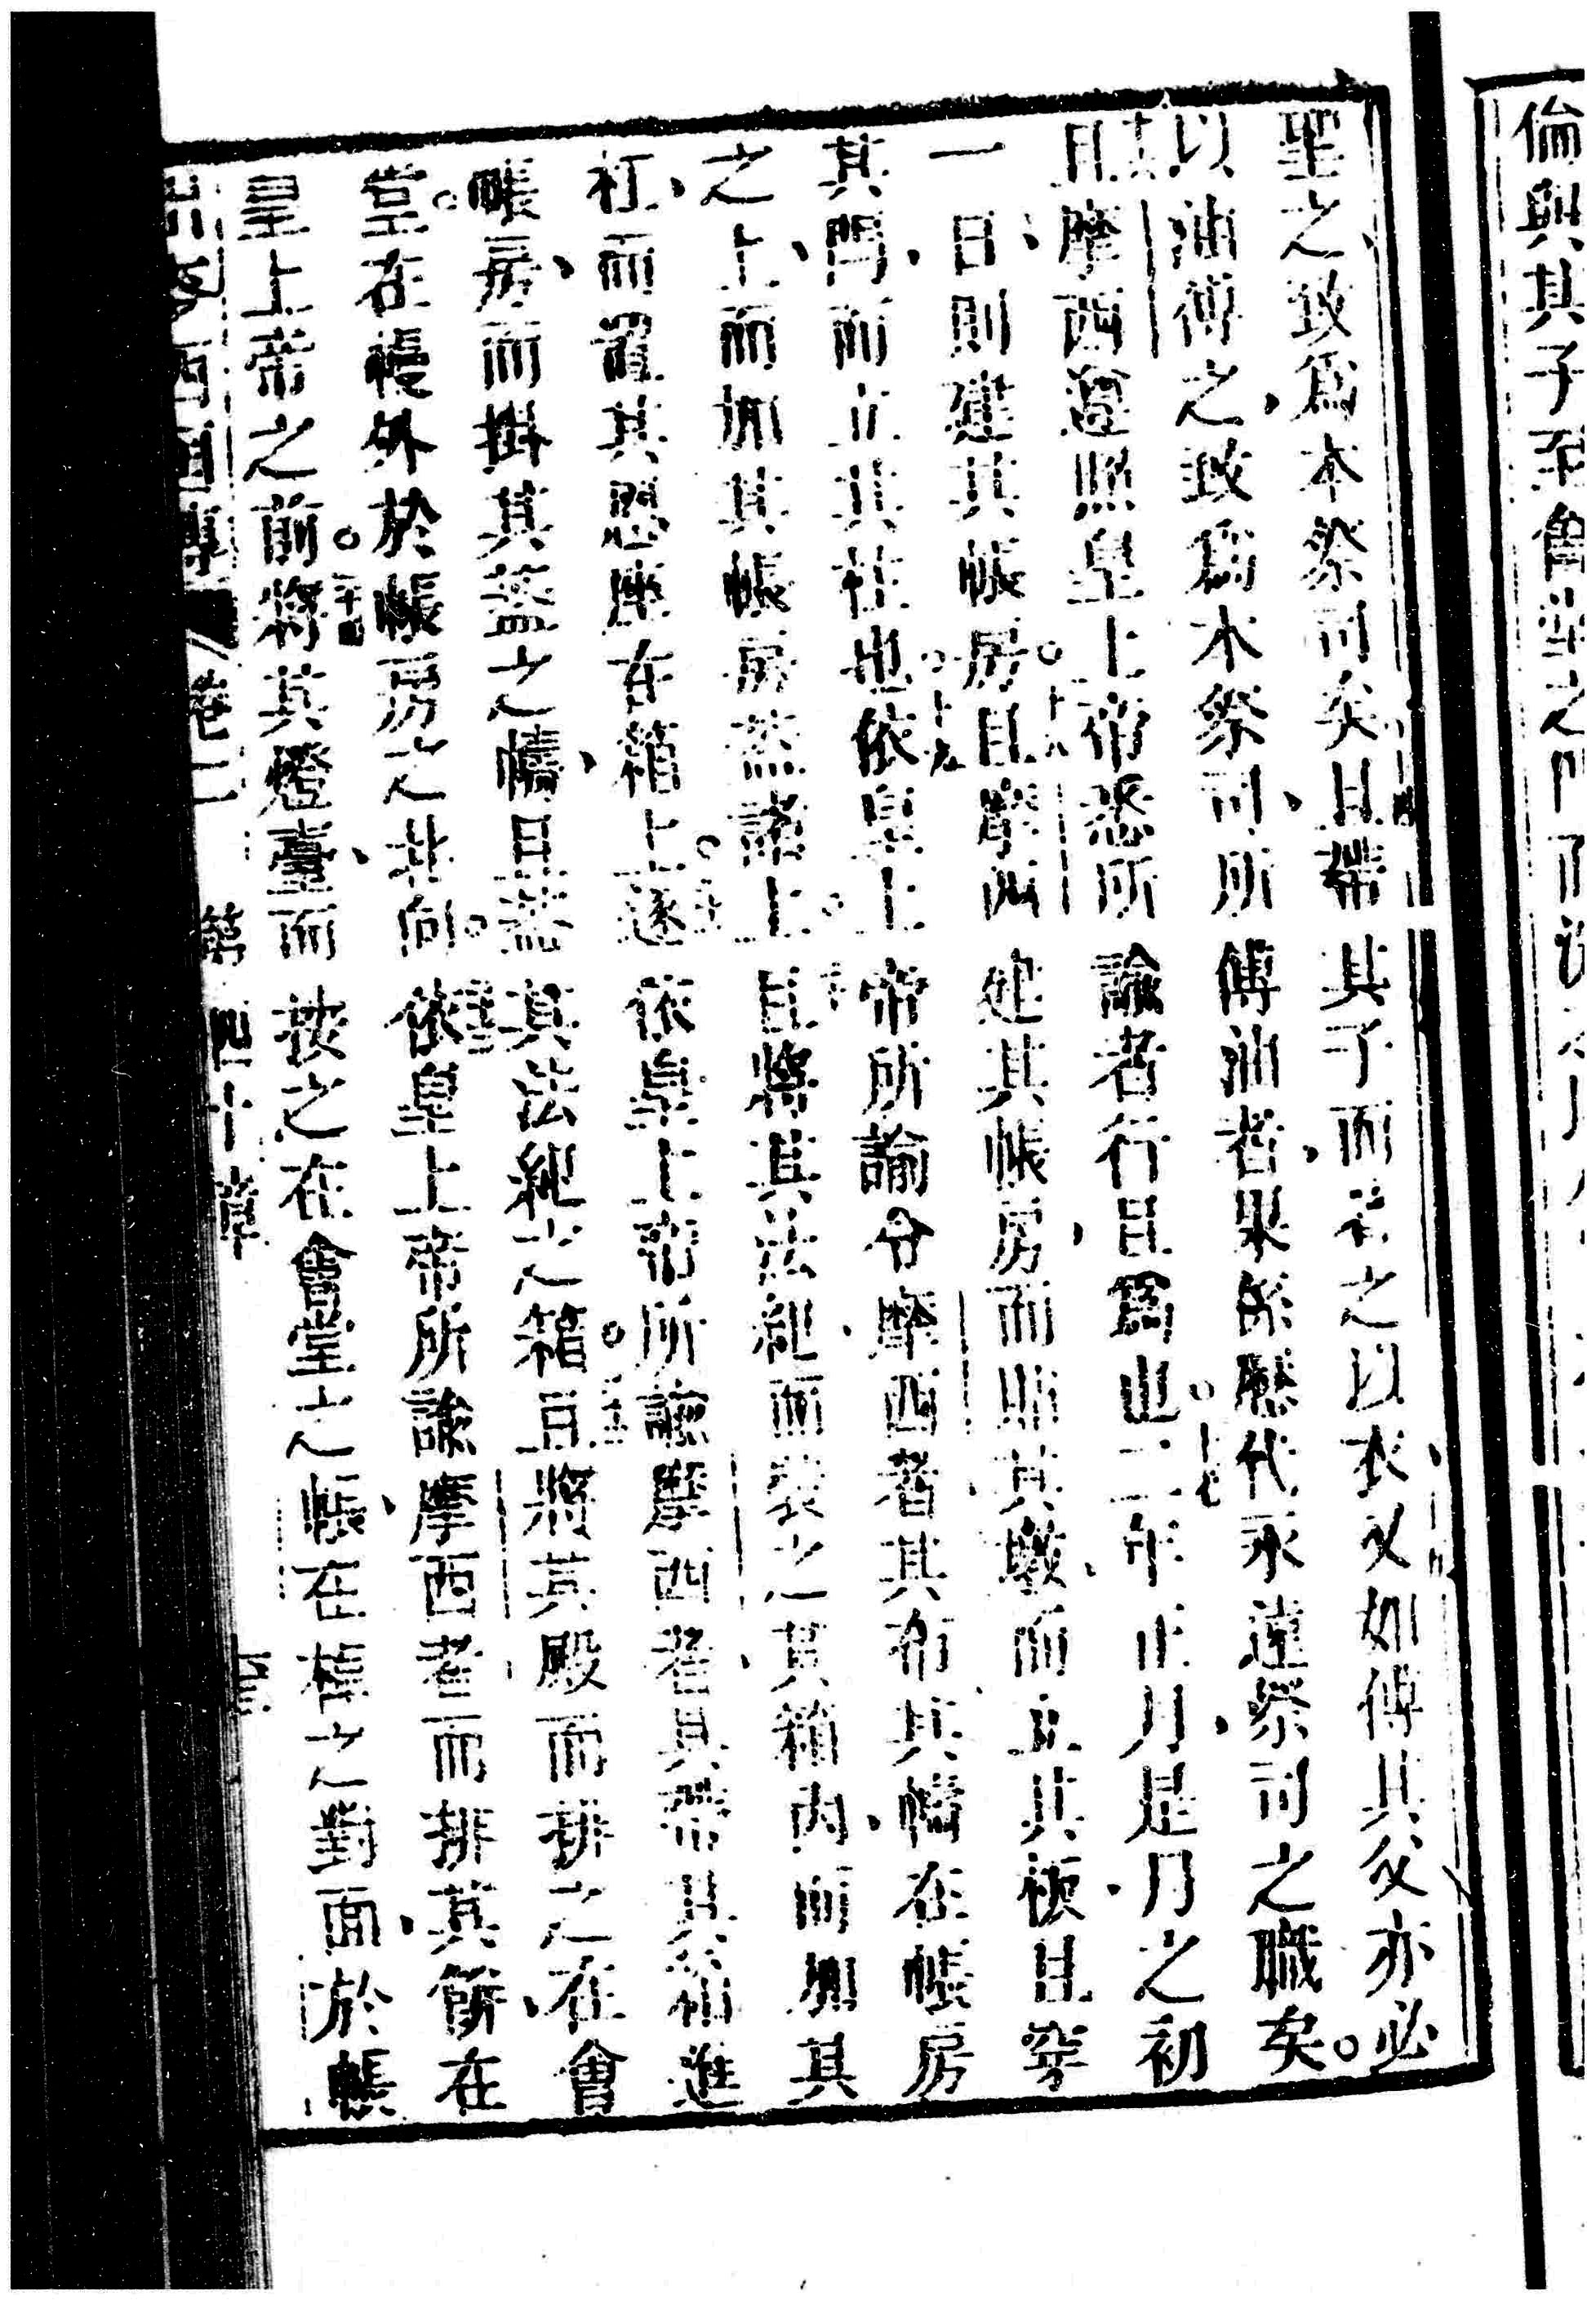 倫與其子至會堂之門
聖之致爲本祭司矣且帶其子而衣之以衣又如傅其父亦必
以油傅之致爲本祭司所傅油者果係歷代永遠祭司之職矣。
十六且摩西遵照皇上帝悉所諭者行且爲也。十七二年正月是月之初
一日則建其帳房。十八且摩西建其帳房而置其墩而立其板且穿
其閂而立其柱也。十九依皇上帝所諭令摩西者其布其幔在帳房
之上而加其帳房蓋諸上。二十且將其法紀而裝之其箱內而加其
杠而置其恩座在箱上。遂依皇上帝所諭摩西者且帶其箱進
帳房而掛其蓋之幔且蓋其法紀之箱。且將其殿而排之在會
堂在幔外於帳房之北向。依皇上帝所諭摩西者而排其餅在
皇上帝之前。二十四將其燈臺而按之在會堂之帳在檯之對面於帳
出麥西國傳 卷二 第四十章